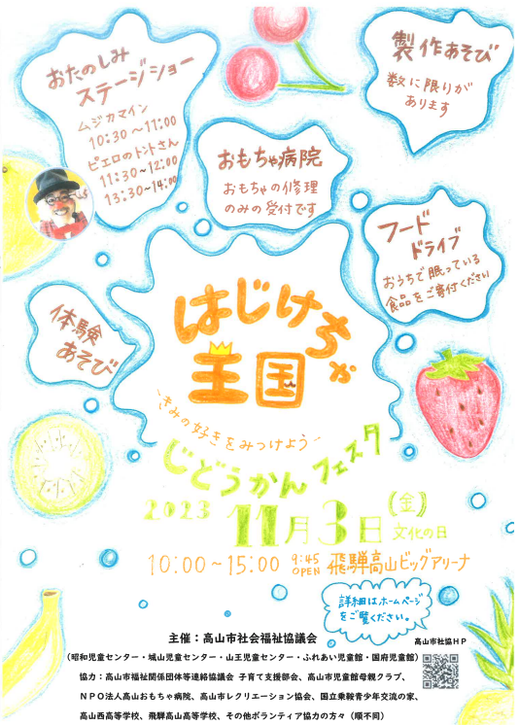 おたのしみ
ステージショー
ムジカマイン
10:30～11:00
ピエロのトントさん
11:30～12:00
13:30～14:00
製作あそび
数に限りが
あります
おもちゃ病院
おもちゃの修理
のみの受付です
フード
ドライブ
おうちで眠っている
食品をご寄付ください
体験
あそび
はじけちゃ
王国
～きみの好きをみつけよう～
じどうかんフェスタ
2023
11月3日(金)
文化の日
10:00～15:00 9:45 OPEN 飛騨高山ビッグアリーナ
詳細はホームページ
をご覧ください。
主催：高山市社会福祉協議会
高山市社協ＨＰ
（昭和児童センター・城山児童センター・山王児童センター・ふれあい児童館・国府児童館）
協力：高山市福祉関係団体等連絡協議会 子育て支援部会、高山市児童館母親クラブ、
ＮＰＯ法人高山おもちゃ病院、高山市レクリエーション協会、国立乗鞍青少年交流の家、
高山西高等学校、飛騨高山高等学校、その他ボランティア協力の方々（順不同）